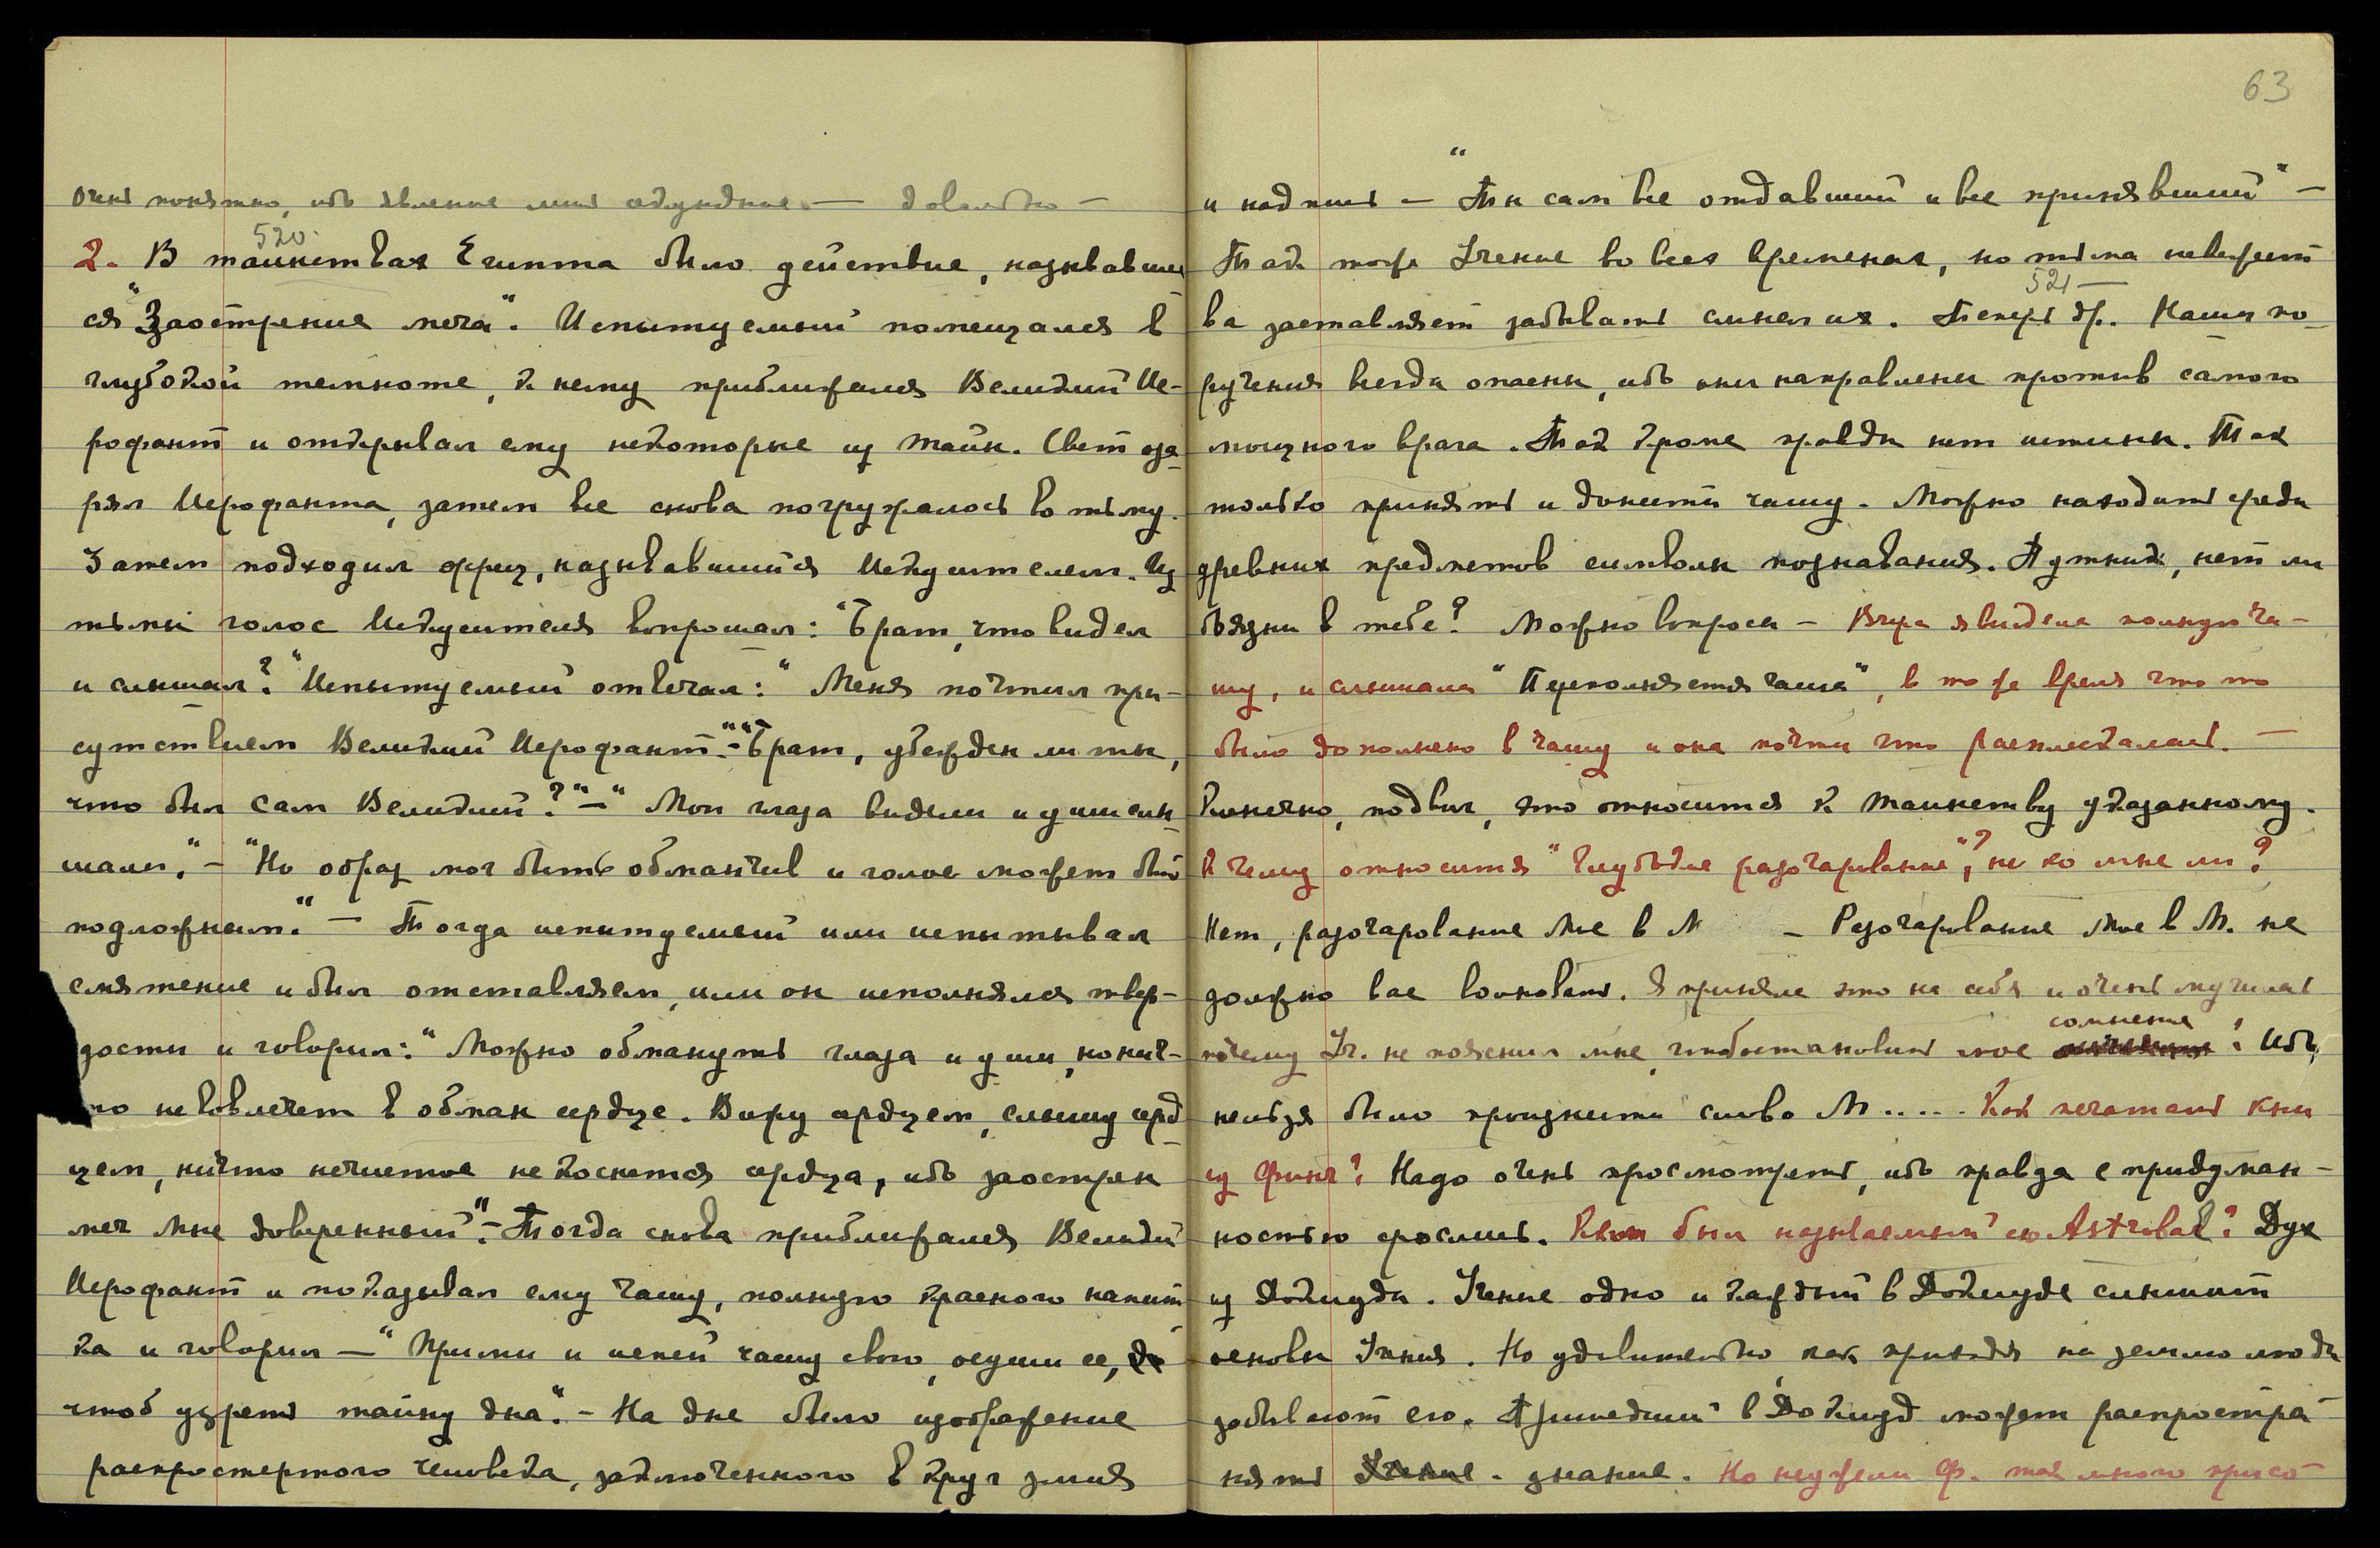 очень понятно, ибо явление лишь — довольно —
520.
2. В таинствах Египта было действие, называвшее
ся "Заострение меча". Испытуемый помещался в
глубокой темноте, к нему приближался Великий Ие-
рофант и открывал ему некоторые из тайн. Свет оза-
рял Иерофанта, затем все снова погружалось во тьму.
Затем подходил жрец, называвшийся Искусителем. Из
тьмы голос Искусителя вопрошал: "Брат, что видел
и слышал?" Испытуемый отвечал: "Меня почтил при-
сутствием Великий Иерофант". - "Брат, убежден ли ты,
что был сам Великий?" — "Мои глаза видели и уши слы-
шали." - "Но образ мог быть обманчив и голос может быть
подложным." — Тогда испытуемый или испытывал
смятение и был отставляем, или он исполнялся твер-
дости и говорил: "Можно обмануть глаза и уши, но нич-
то не вовлечет в обман сердце. Вижу сердцем, слышу серд-
цем, ничто нечистое не коснется сердца, ибо заострен
меч мне доверенный". - Тогда снова приближался Великий
Иерофант и показывал ему чашу, полную красного напит
ка и говорил — "Прими и испей чашу свою, осуши ее,
чтоб узреть тайну дна". - На дне было изображение
распростертого человека, заключенного в круг змия
63
и надпись — "Ты сам все отдавший и все принявший" —
Так то же Учение во всех временах, но тьма невежест
521 —
ва заставляет забывать смысл их. Теперь др. Наши по-
ручения всегда опасны, ибо они направлены против самого
мощного врага. Так кроме правды нет истины. Так
только принять и допить чашу. Можно находить среди
древних предметов символы познавания. Путник, нет ли
боязни в тебе? Можно вопросы — Вчера я видела полную ча-
шу, и слышала "Переполняется чаша", в то же время что то
было дополнено в чашу и она почти что расплескалась. —
Конечно, подвиг, это относится к таинству указанному.
К чему относится "Глубокое разочарование"? не ко мне ли?
Нет, разочарование Мое в М — Разочарование Мое в М. не
должно вас волновать. Я приняла это на себя и очень мучилась
почему Уч. не пояснил мне, чтоб остановить мое сомнение? Ибо
нельзя было произнести слово М..... Как печатать кни
гу Фини? Надо очень просмотреть, ибо правда с придуман-
ностью срослись. Кем был называемый ею Astrival? Дух
из Докиуда. Учение одно и каждый в Докиуде слышит
основы Учения. Но удивительно как приходя на землю люди
забывают его. Пришедший в Докиуд может распростра
нять знание. Но неужели Ф. так много присо-